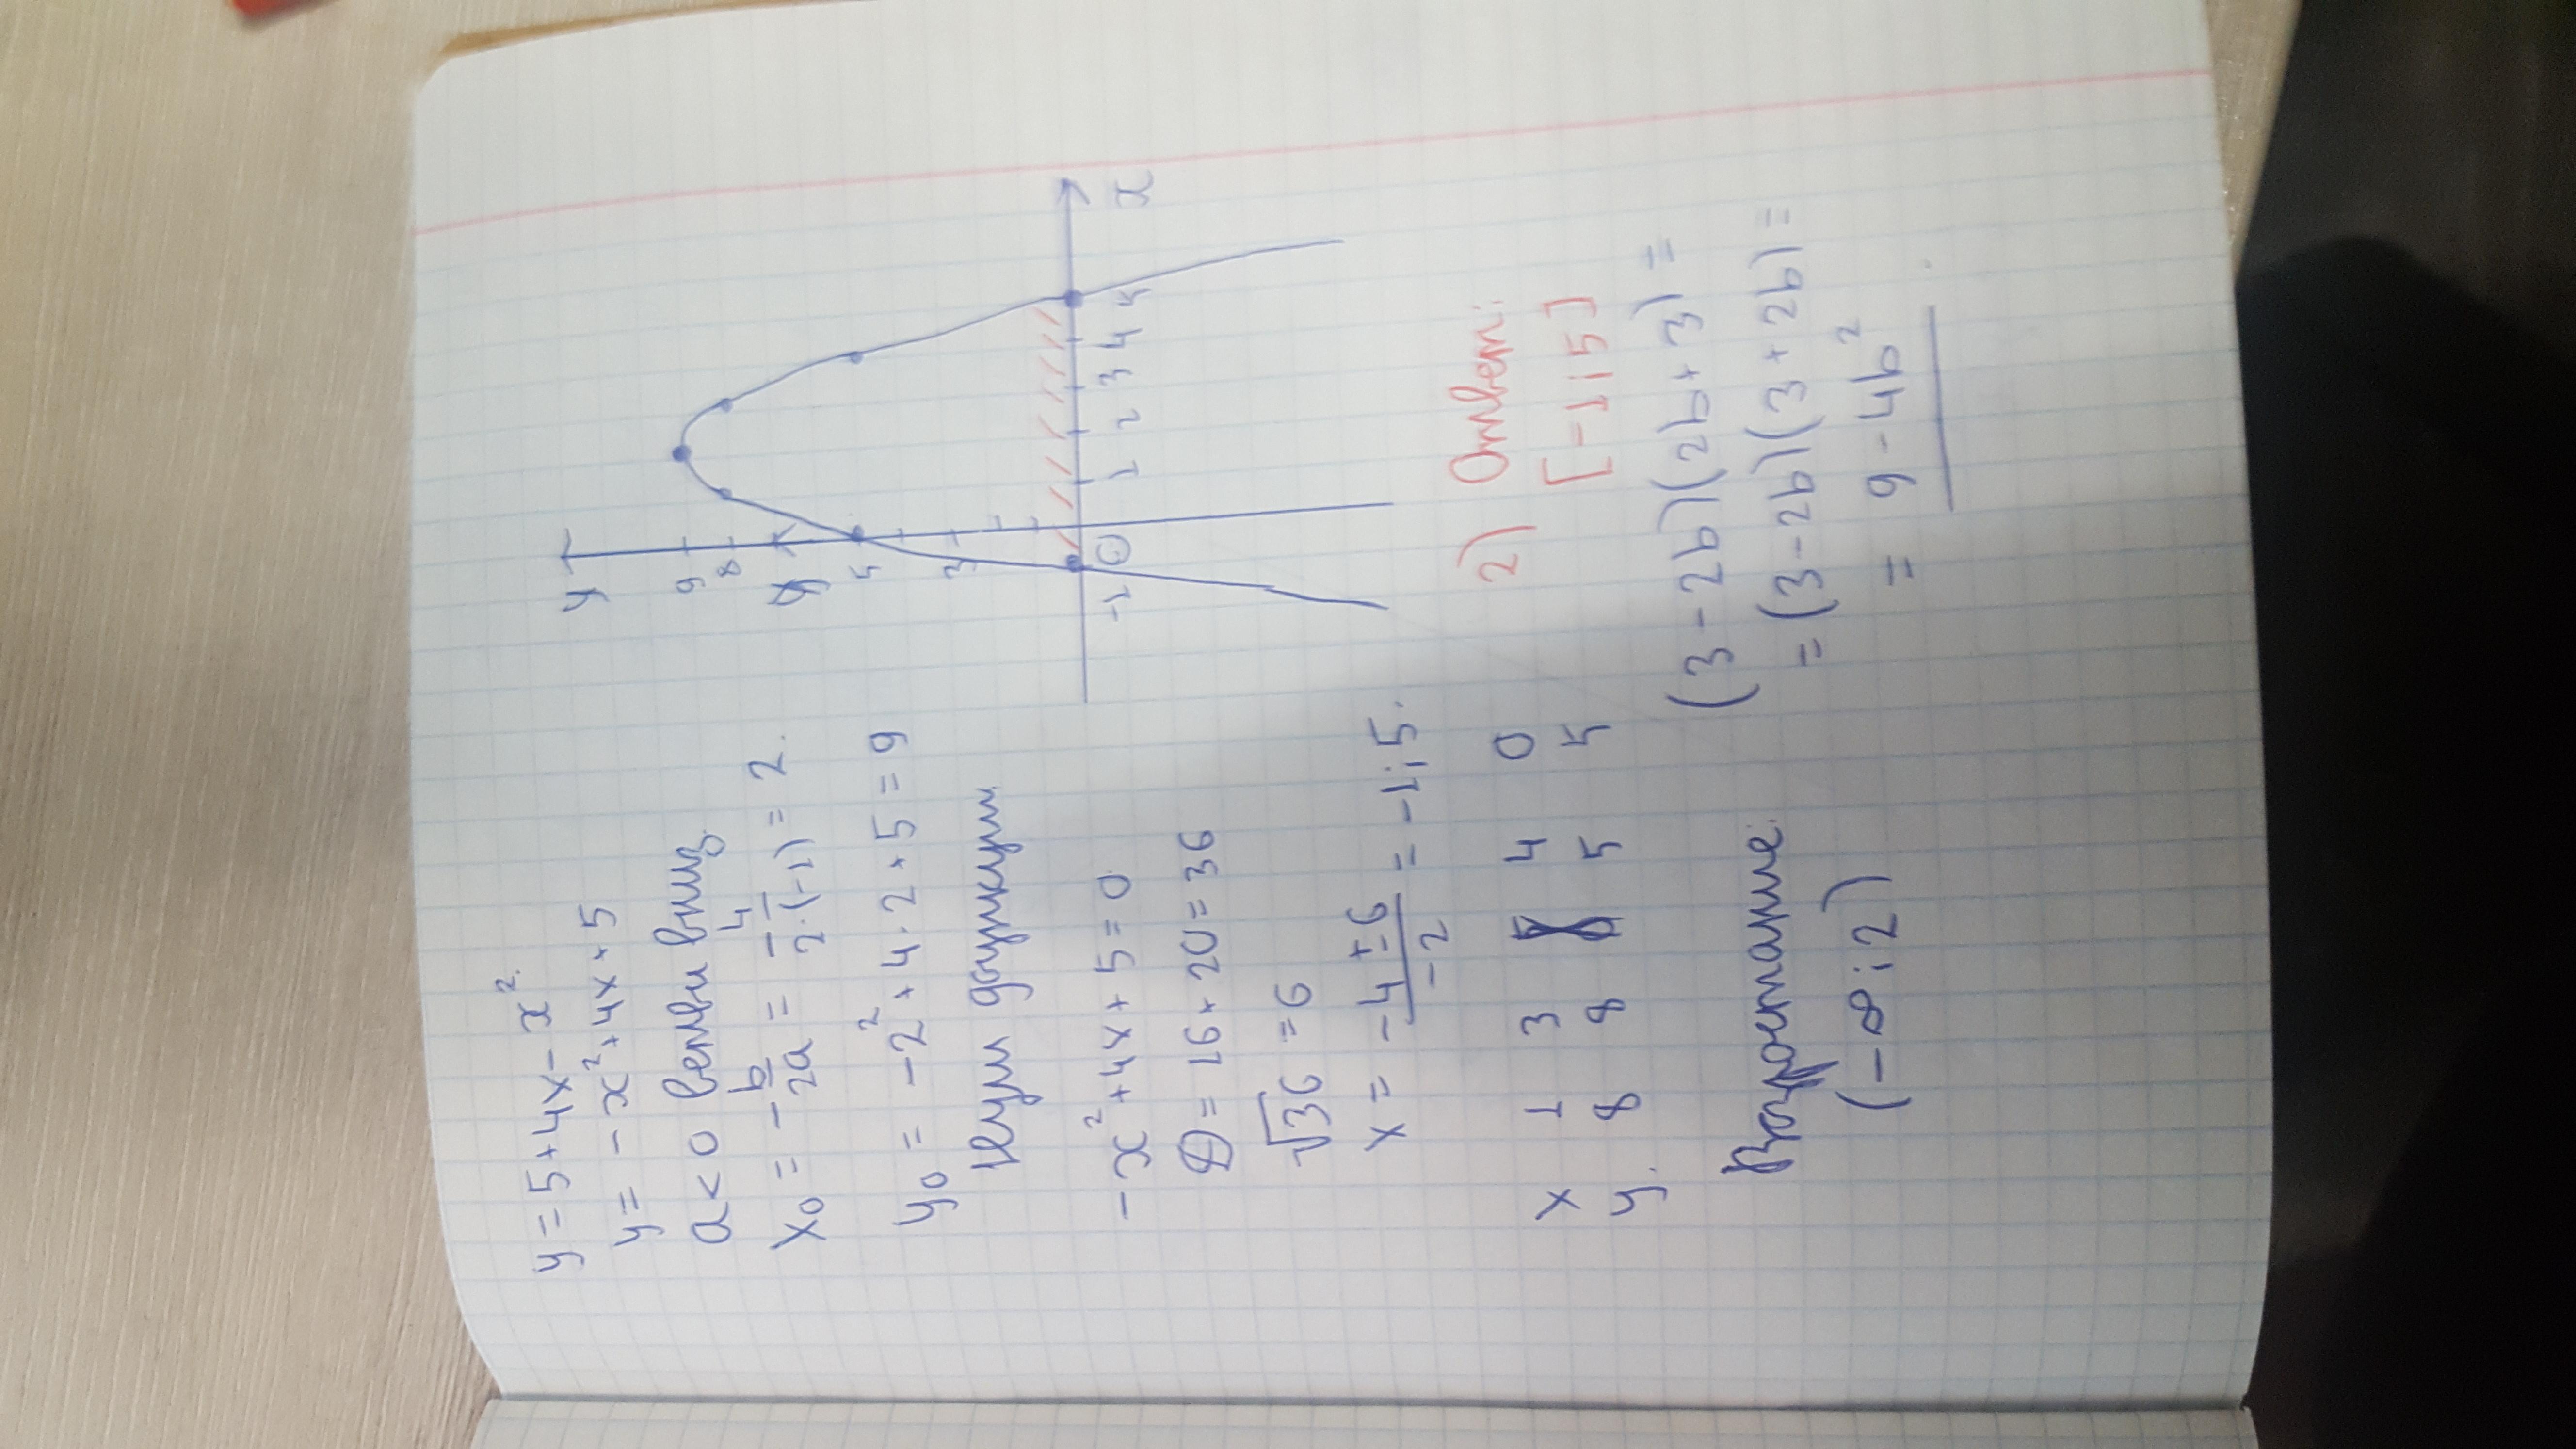 y = 5 + 4x - x².
y = - x² + 4x + 5
a < 0 ветви вниз.
x₀ = - b/2a = - 4/2·(-1) = 2.
y₀ = -2² + 4·2 + 5 = 9
Нули функции
-x² + 4x + 5 = 0
D = 16 + 20 = 36
√36 = 6
x = -4 ± 6/-2 = -1; 5.
x 1 3 4 0
y. 8 8 5 5
Возрастание:
(-∞; 2)
y
9
8
5
3
-1 0 1 2 3 4 5 x
2) Ответ:
[-1; 5]
(3 - 2b)(2b + 3) =
= (3 - 2b)(3 + 2b) =
= 9 - 4b²